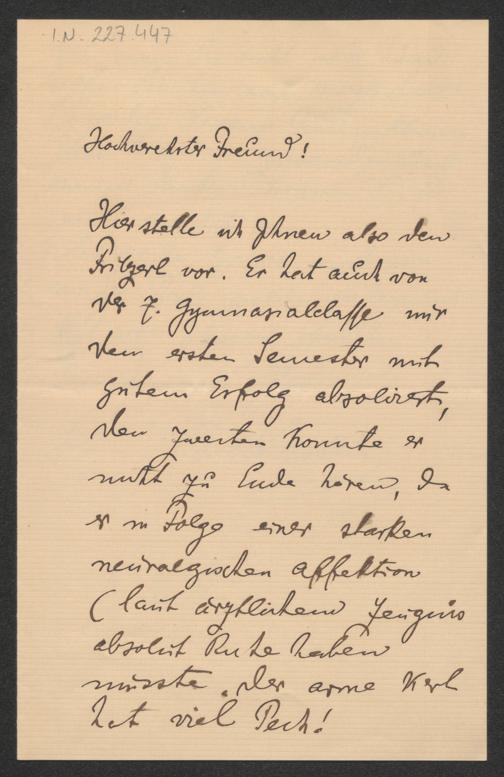 I.N. 227.447
Hochverehrter Freund!
Hier stelle ich Ihnen also den
Fritzerl vor. Er hat auch von
der 7. Gymnasialclasse nur
den ersten Semester mit
gutem Erfolg absolvirt,
den zweiten konnte er
nicht zu Ende hören, da
er in Folge einer starken
neuralgischen Affektion
(laut ärztlichem Zeugnis
absolut Ruhe haben
musste. Der arme Kerl
hat viel Pech!